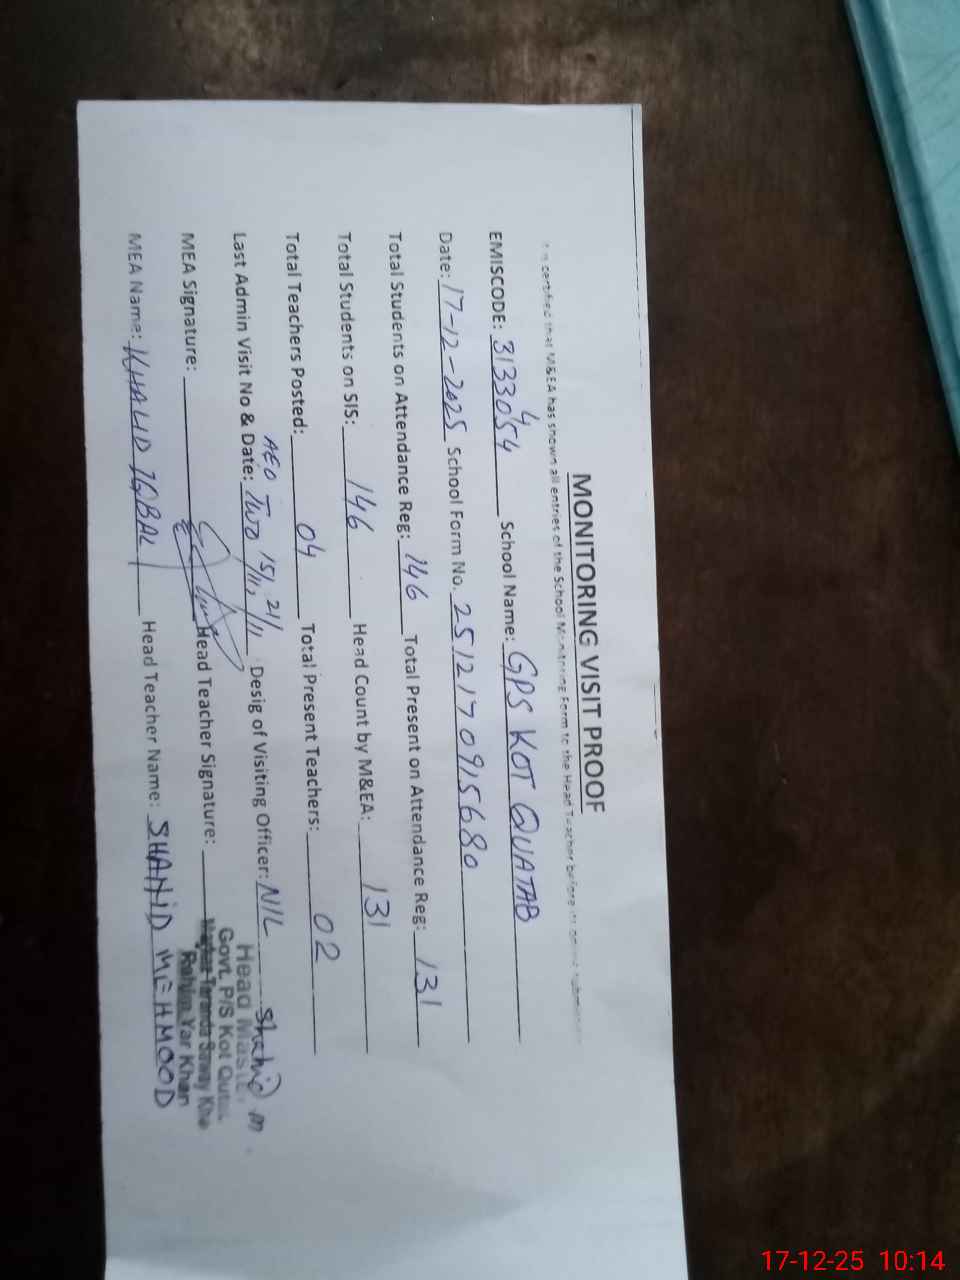 MONITORING VISIT PROOF
certified that M&EA has shown all entries of the School Monitoring Form to the Head Teacher before
EMISCODE: 31330454 School Name: GPS KOT QUATAB
Date: 17-12-2025 School Form No. 2512170915680
Total Students on Attendance Reg: 146 Total Present on Attendance Reg: 131
Total Students on SIS: 146 Head Count by M&EA: 131
Total Teachers Posted: 04 Total Present Teachers: 02
AEO
Last Admin Visit No & Date: Two 15/11, 21/11 Desig of Visiting Officer: NIL
MEA Signature: Head Teacher Signature: Shahid M
Head Master
Govt. P/S Kot Qutab
Markaz Taranda Saway Khan
Rahim Yar Khan
MEA Name: KHALID IQBAL Head Teacher Name: SHAHID MEHMOOD
17-12-25 10:14